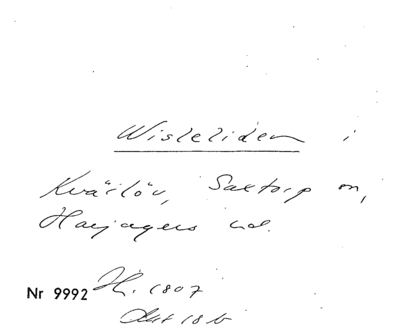 Wisleliden i
Kvärlöv, Saxtorp sn,
Harjagers hd.
Nr 9992 H. 1807
Akt 18 b